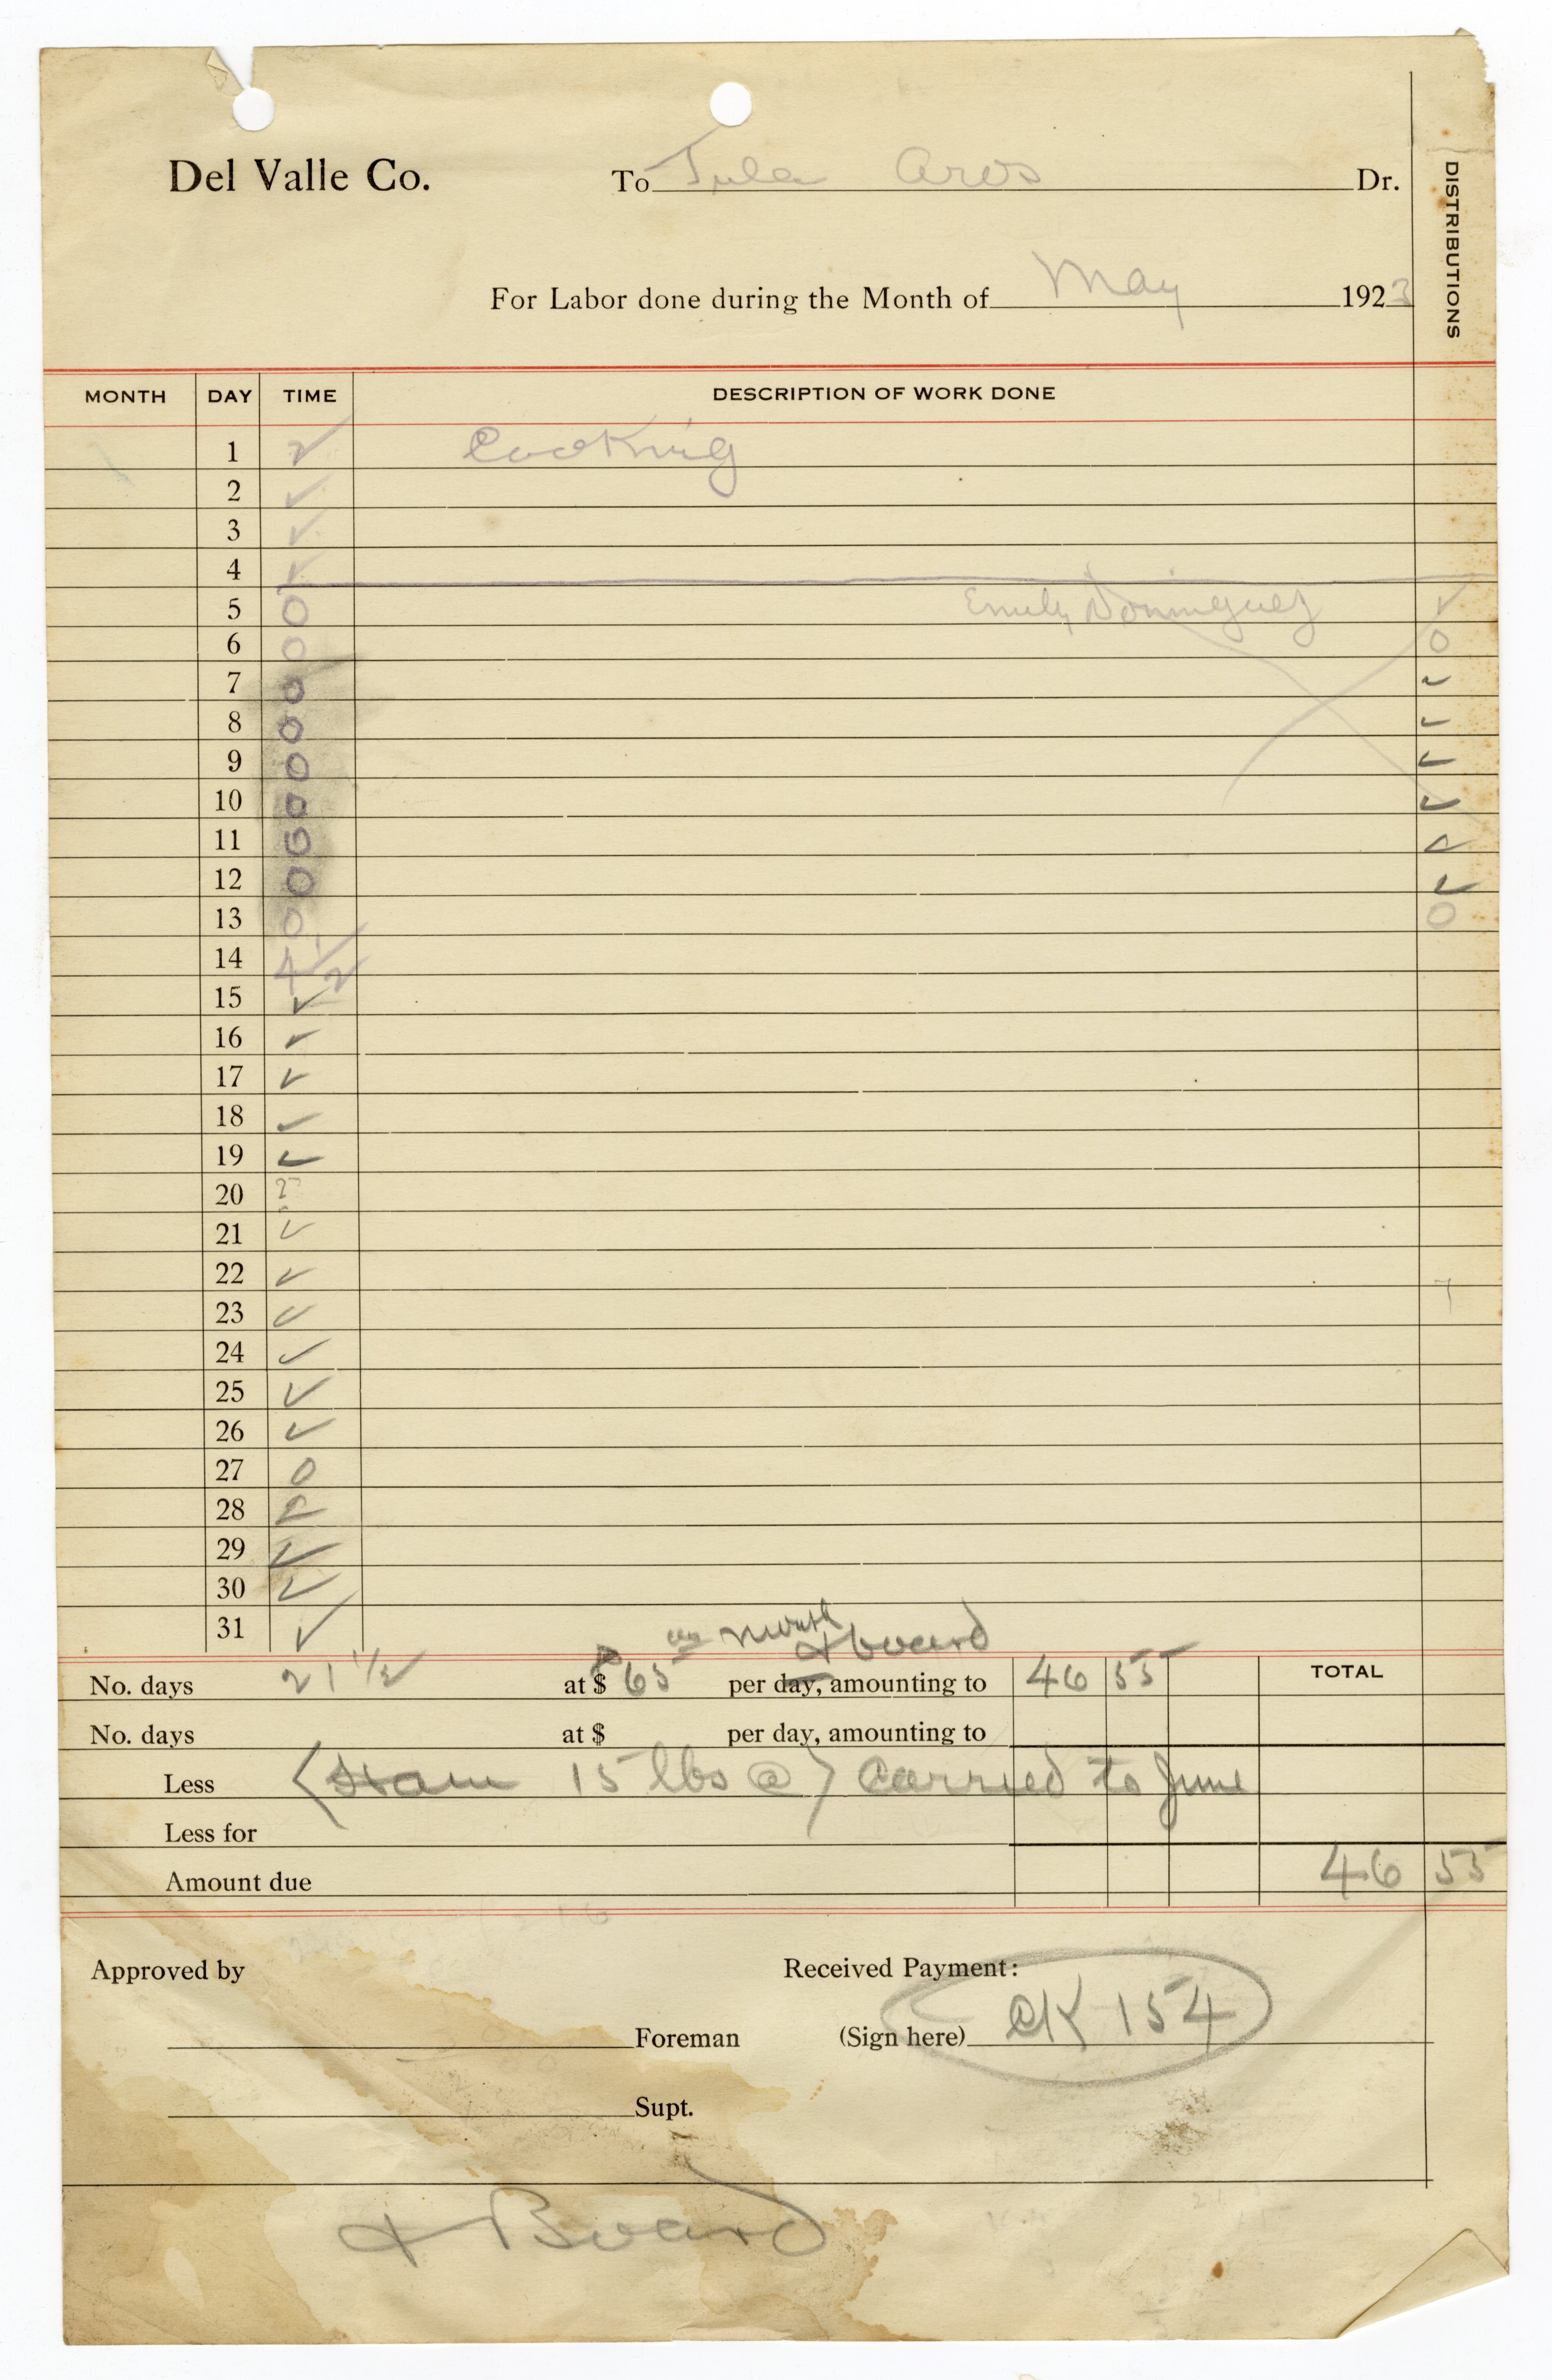 Del Valle Co. To Tula Aros Dr.
DISTRIBUTIONS
For Labor done during the Month of May 1923
MONTH DAY TIME DESCRIPTION OF WORK DONE
1 ✓ Cooking
2 ✓
3 ✓
4 ✓
5 0 Emily Dominguez ✓
6 0 0
7 0 ✓
8 0 ✓
9 0 ✓
10 0 ✓
11 0 ✓
12 0 ✓
13 0 0
14 1/2
15 ✓
16 ✓
17 ✓
18 ✓
19 ✓
20
21 ✓
22 ✓
23 ✓
24 ✓
25 ✓
26 ✓
27 0
28
29 ✓
30 ✓
31 ✓
month & board
No. days 21 1/2 at $ 65 per day, amounting to 46 55 TOTAL
No. days at $ per day, amounting to
Less (Ham 15 lbs @) Carried to June
Less for
Amount due 46 55
Approved by Received Payment:
Foreman (Sign here) CK 154
Supt.
& Board